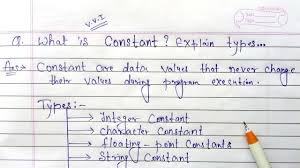 V.V.I
Q. What is Constant? Explain types...
Ans→ Constant are data values that never change
their values during program execution.
Types:-
→ Integer Constant
→ character Constant
→ floating-point Constants
→ String Constant